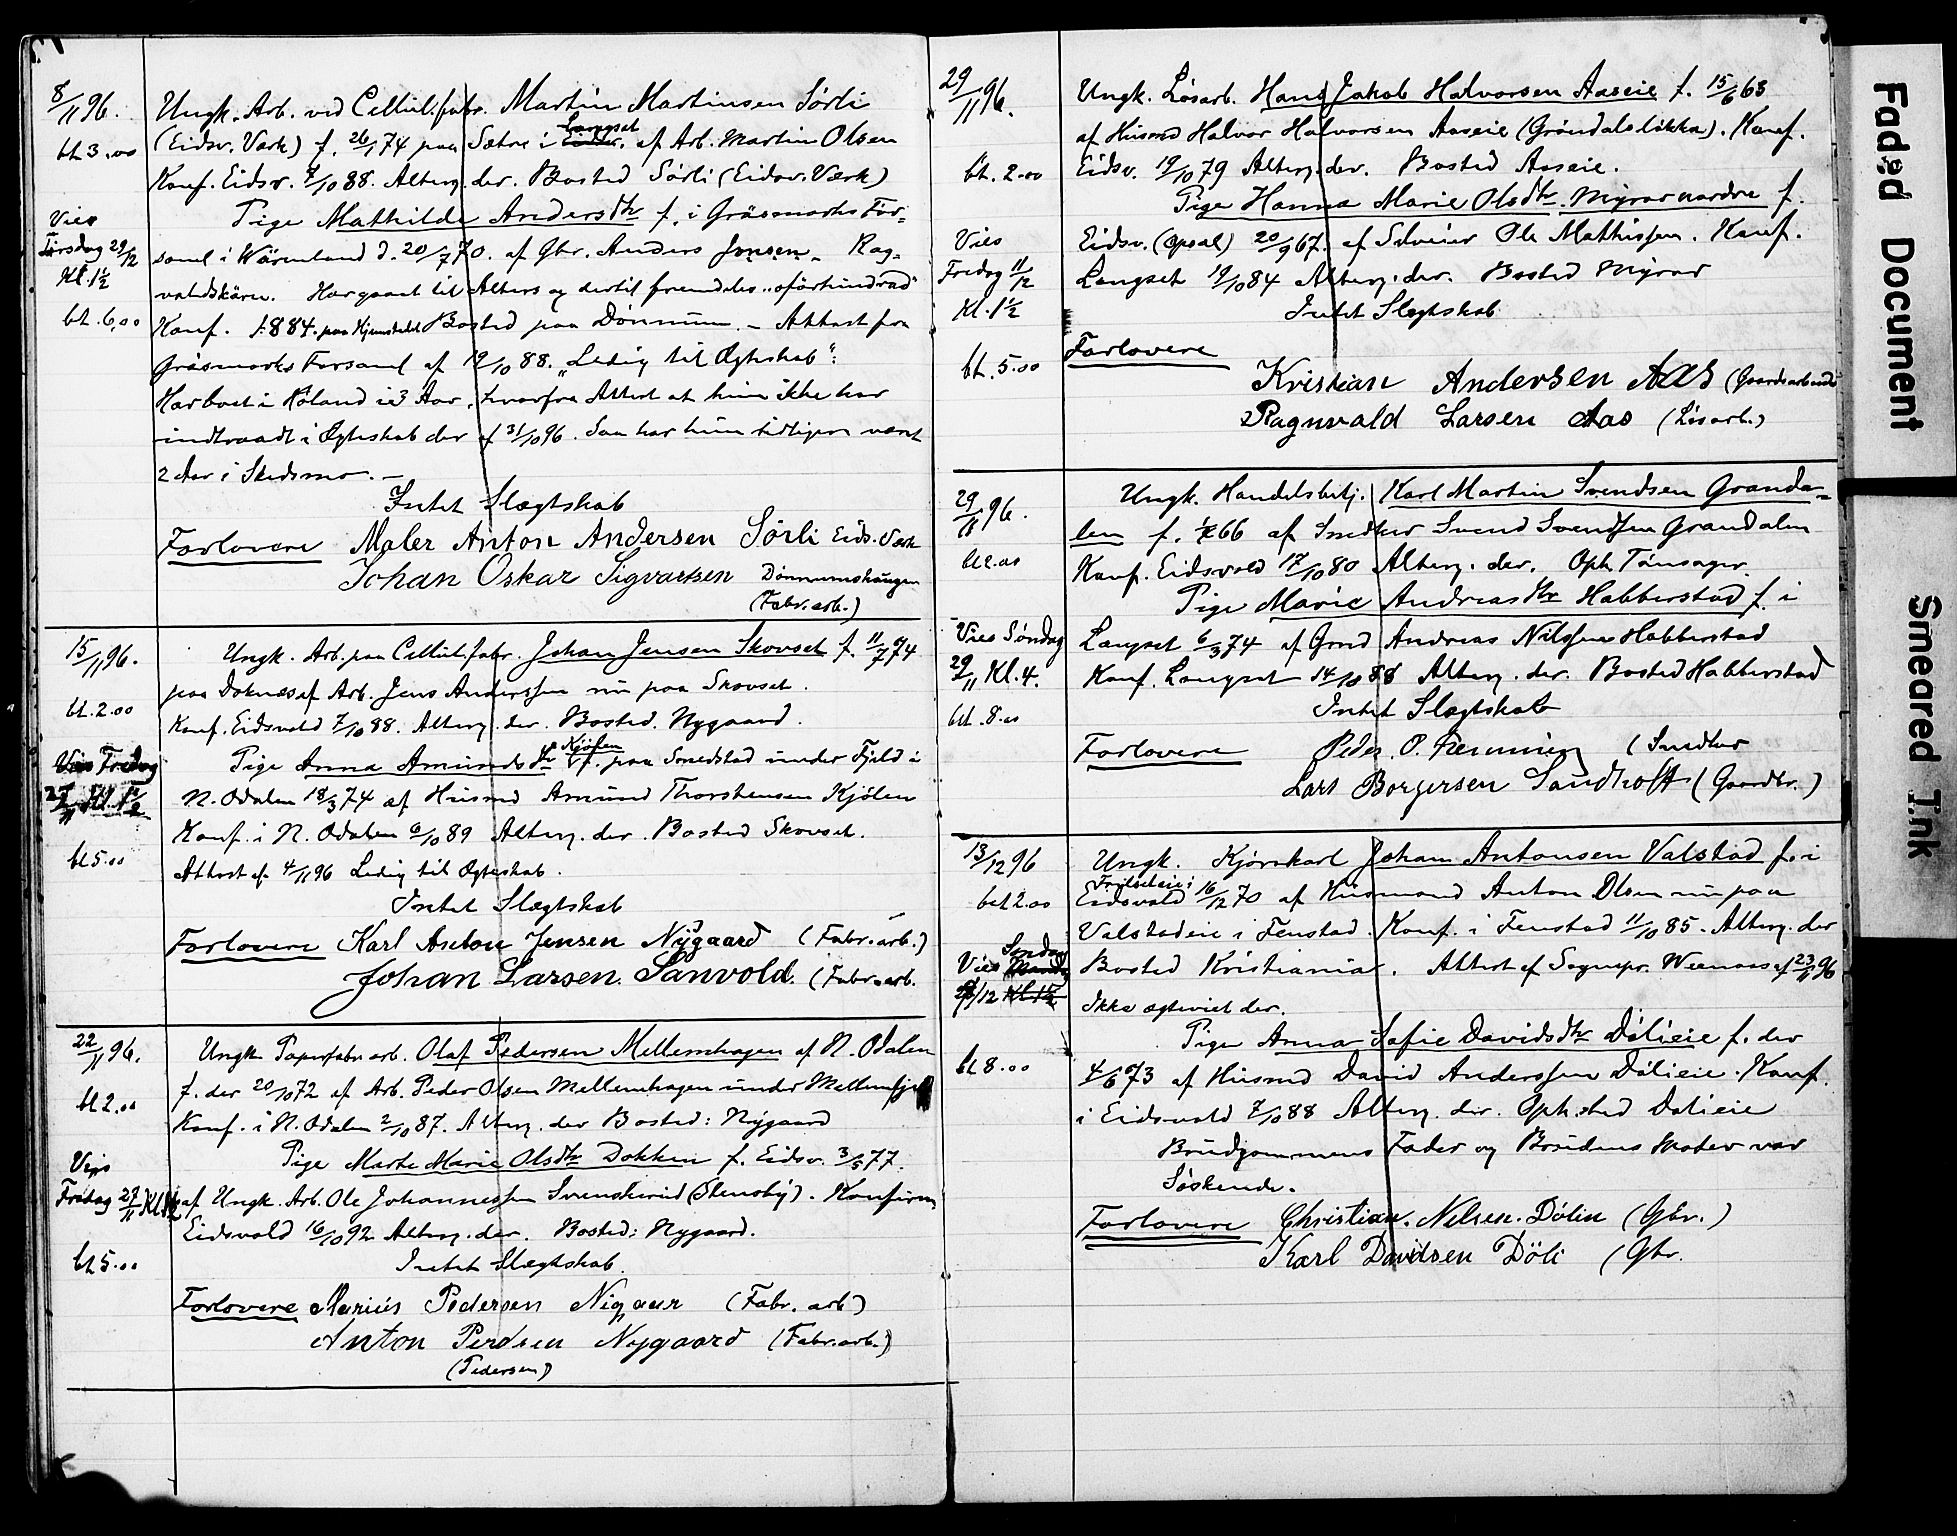 8/11 96.
bt 3.00
Vies
Tirsdag 29/12
Kl. 1½
bt. 6,00
Ungk. Arb. ved Cellul.fabr. Martin Martinsen Sørli
(Eidsv. Værk) f. 26/1 74 paa Sætre i Langset af Arb. Martin Olsen
Konf. Eidsv. 7/10 88. Alterg. der. Bosted Sørli (Eidsv. Værk)
Pige Mathilde Andersdtr f. i Gräsmarks För-
saml i Wärmland d. 20/7 70. af Gbr. Anders Jonsen
Har gaaet til Alters og dertil fremdeles "oförhindrad"
Konf. 1884. paa Hjemstedet Bosted paa Dønnum. - Attest fra
Gräsmarks Forsaml af 19/10 88. "Ledig til Ægteskab":
Har boet i Høland i 3 Aar, hvorfra Attest at hun ikke har
indtraadt i Ægteskab der af 31/10 96. Saa har hun tidligere været
2 Aar i Skedsmo. -
Intet Slægtskab
Forlovere Maler Anton Andersen Sørli Eids. Værk
Johan Oskar Sigvartsen Dønnumshaugen
(Fabr. arb.)
15/11 96.
bt. 2.00
Vies Fredag
27/11 Kl. 1½
bt 5.00
Ungk. Arb. paa Cellul.fabr. Johan Jensen Skovset f. 11/7 74
paa Doknæs af Arb. Jens Anderssen nu paa Skovset.
Konf. Eidsvold 7/10 88. Alterg. der. Bosted. Nygaard.
Pige Anna Amundsdtr Kjølen f. paa Smedstad under Fjeld i
N. Odalen 18/3 74 af Husmd Amund Thorstensen Kjölen
Konf. i N. Odalen 6/10 89 Alterg. der. Bosted Skovset.
Attest af 4/11 96 Ledig til Ægteskab.
Intet Slægtskab
Forlovere Karl Anton Jensen Nygaard (Fabr. arb.)
Johan Larsen Sanvold. (Fabr. arb.
22/11 96.
bt 2.00
Vies
Fredag 27/11 Kl. 1½
bt 5.00
Ungk Papirfabr arb. Olaf Pedersen Mellemhagen af N. Odalen
f. der 20/10 72 af Arb. Peder Olsen Mellemhagen under Mellemfjeld
Konf. i N. Odalen 2/10 87. Alterg. der Bosted: Nygaard
Pige Marte Marie Olsdtr Dokken f. Eidsv. 3/5 77.
af Ungk. Arb. Ole Johannessen Svenskerud (Stensby). Konfirm
Eidsvold 16/10 92 Alterg. der. Bosted: Nygaard.
Intet Slægtskab.
Forlovere Marius Pedersen Nigaar (Fabr. arb)
Anton Perdsen Nygaard (Fabr. arb.)
(Pedersen)
29/11 96.
bt. 2.00
Vies
Fredag 11/12
Kl. 1½
bt. 5.00
Ungk. Løsarb. Hans Jakob Halvorsen Aaseie f. 15/6 63
af Husmd Halvor Halvorsen Aaseie (Grøndalsløkka). Konf.
Eidsv. 19/10 79 Alterg. der. Bosted Aaseie.
Pige Hanna Marie Olsdtr. Myrar nordre f.
Eidsv. (Opsal) 20/9 67. af Selveier Ole Mathissen. Konf.
Langset 19/10 84 Alterg. der. Bosted Myrar
Intet Slægtskab
Forlovere
Kristian Andersen Aas (Gaardsarbeider
Ragnvald Larsen Aas (Løsarb.)
29/11 96.
bt 2.00
Vies Søndag
29/11 Kl. 4.
bt. 8.00
Ungk. Handelsbetj. Karl Martin Svendsen Granda-
len f. 66 af Snedker Svend Svendsen Grandalen
Konf. Eidsvold 17/10 80 Alterg. der. Oph. Tønsager.
Pige Marie Andreasdtr Habberstad f. i
Langset 6/3 74 af Grmd Andreas Nilssen Habberstad
Konf. Langset 14/10 88 Alterg. der. Bosted Habberstad
Intet Slægtskab
Forlovere Peder P. (Snedker
Lars Borgersen Sandholt (Gaardbr.)
13/12 96
bet 2.00
Vies Søndag
/12 Kl. 1½
bt 8.00
Ungk. Kjørekarl Johan Antonsen Valstad f. i
Eidsvold 16/12 70 af Husmand Anton Olsen nu paa
Valstadeie i Fenstad. Konf. i Fenstad 11/10 85. Alterg. der
Bosted Kristiania. Attest af Sognepr. Wernaas af 23/11 96
Ikke ægteviet der.
Pige Anna Sofie Davidsdtr Dølieie f. der
4/6 73 af Husmd David Anderssen Dølieie. Konf.
i Eidsvold 7/10 88 Alterg. der. Oph.sted Dølieie
Brudgommens Fader og Brudens Moder var
Søskende.
Forlovere Christian. Nelsen. Dølin (Gbr.)
Karl Davidsen Döli (Gbr.
Faded Document
Smeared Ink